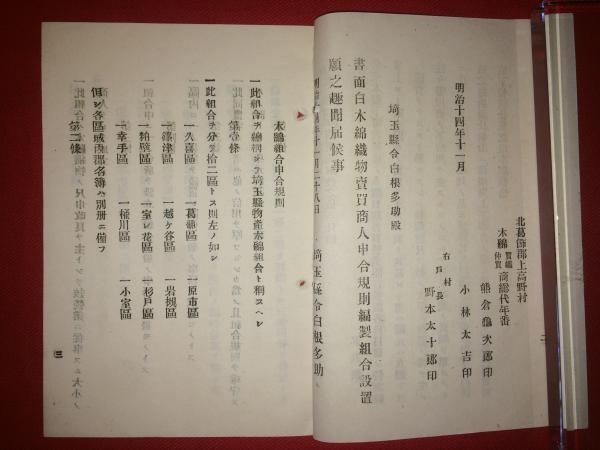 北葛飾郡上高野村
木綿
賣繼
仲買
商總代年番
熊倉龜次郎印
小林太吉印
右戸長
村
野本太十郎印
明治十四年十一月
埼玉縣令白根多助殿
書面白木綿織物賣買商人申合規則編製組合設置
願之趣聞届候事
明治十四年十一月二十八日
埼玉縣令白根多助
木綿組合申合規則
第壹條
一此組合ヲ總稱シテ埼玉縣物產木綿組合ト稱スヘシ
一此組合ヲ分テ拾二區トス則左ノ如シ
一久喜區
一葛飾區
一原市區
一篠津區
一越ケ谷區
一岩槻區
一粕壁區
一室レ花區
一杉戸區
一幸手區
一桶川區
一小室區
但シ各區域內郡名簿ハ別册ニ備フ
第二條